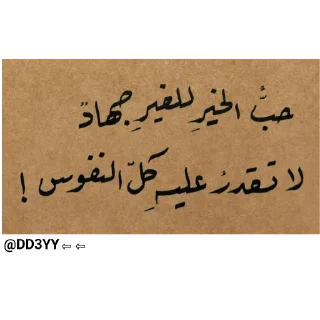 حبُّ الخيرِ للغيرِ جهادٌ
لا تقدرُ عليهِ كلّ النفوس !
@DD3YY ⇦ ⇦